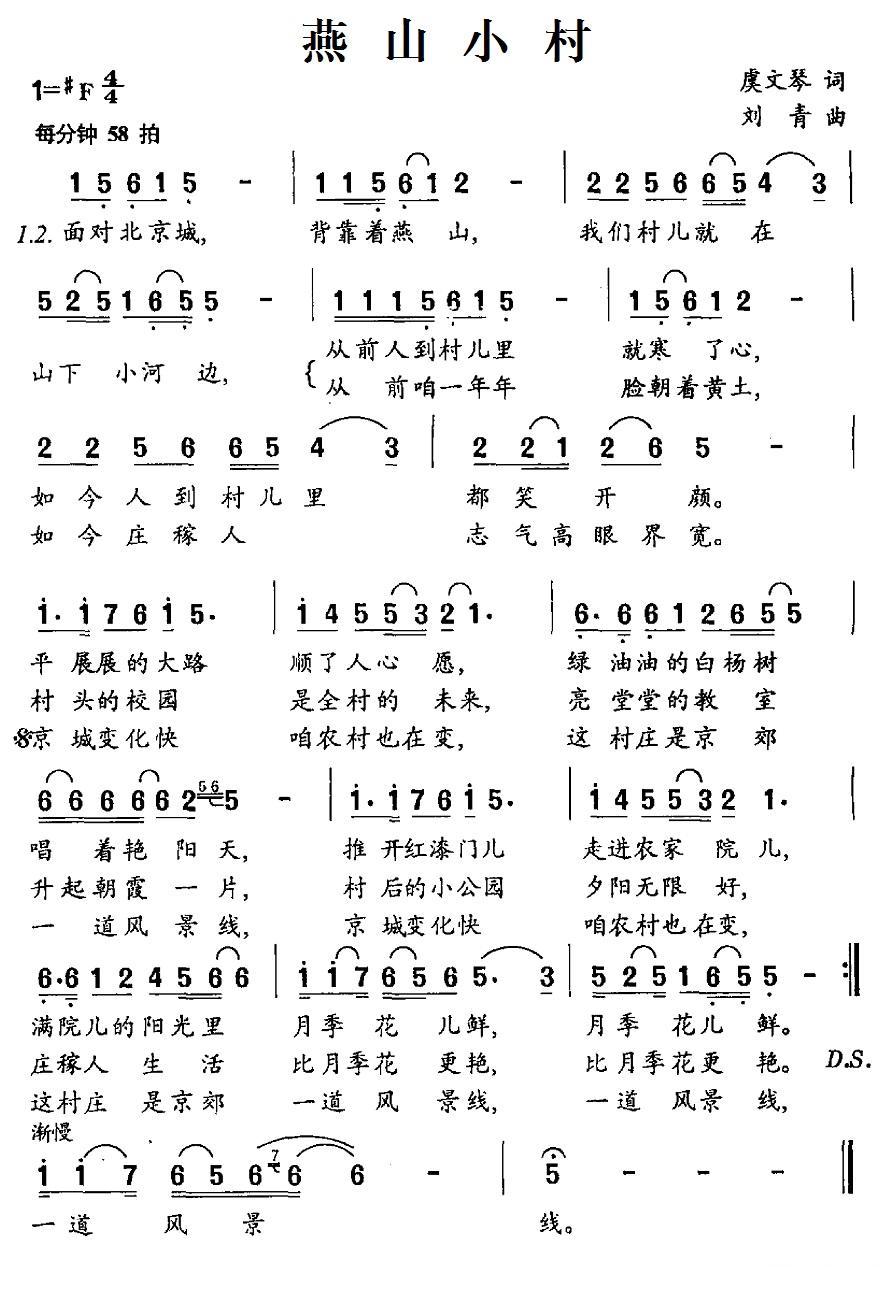 燕山小村
1=♯F 4/4
虞文琴 词
每分钟 58 拍
刘 青 曲
1 5 6 1 5 - | 1 1 5 6 1 2 - | 2 2 5 6 6 5 4 3 |
1.2. 面对北京城, 背靠着燕 山, 我们村儿就 在
5 2 5 1 6 5 5 - | 1 1 1 5 6 1 5 - | 1 5 6 1 2 - |
从前人到村儿里 就寒 了心,
山下 小河 边, {
从 前咱一年年 脸朝着黄土,
2 2 5 6 6 5 4 3 | 2 2 1 2 6 5 - |
如今人到村儿里 都笑开 颜。
如今庄稼人 志气高眼界宽。
i. i 7 6 i 5. | i 4 5 5 3 2 1. | 6. 6 6 1 2 6 5 5 |
平 展展的大路 顺了人心 愿, 绿 油油的白杨树
村 头的校园 是全村的 未来, 亮 堂堂的教 室
𝄋京 城变化快 咱农村也在变, 这 村庄是京 郊
6 6 6 6 6 2 56 5 - | i. i 7 6 i 5. | i 4 5 5 3 2 1. |
唱 着艳 阳天, 推 开红漆门儿 走进农家 院儿,
升起朝霞 一 片, 村 后的小公园 夕阳无限 好,
一 道风 景线, 京 城变化快 咱农村也在变,
6.6 1 2 4 5 6 6 | i i 7 6 5 6 5. 3 | 5 2 5 1 6 5 5 - :|
满院儿的阳光里 月季 花 儿鲜, 月季 花儿 鲜。
庄稼人 生 活 比月季花 更艳, 比月季花更 艳。 D.S.
这村庄 是京郊 一道 风 景线, 一道 风景 线,
渐慢
i i 7 6 5 6 7 6 6 - | 5 - - - ||
一道 风 景 线。